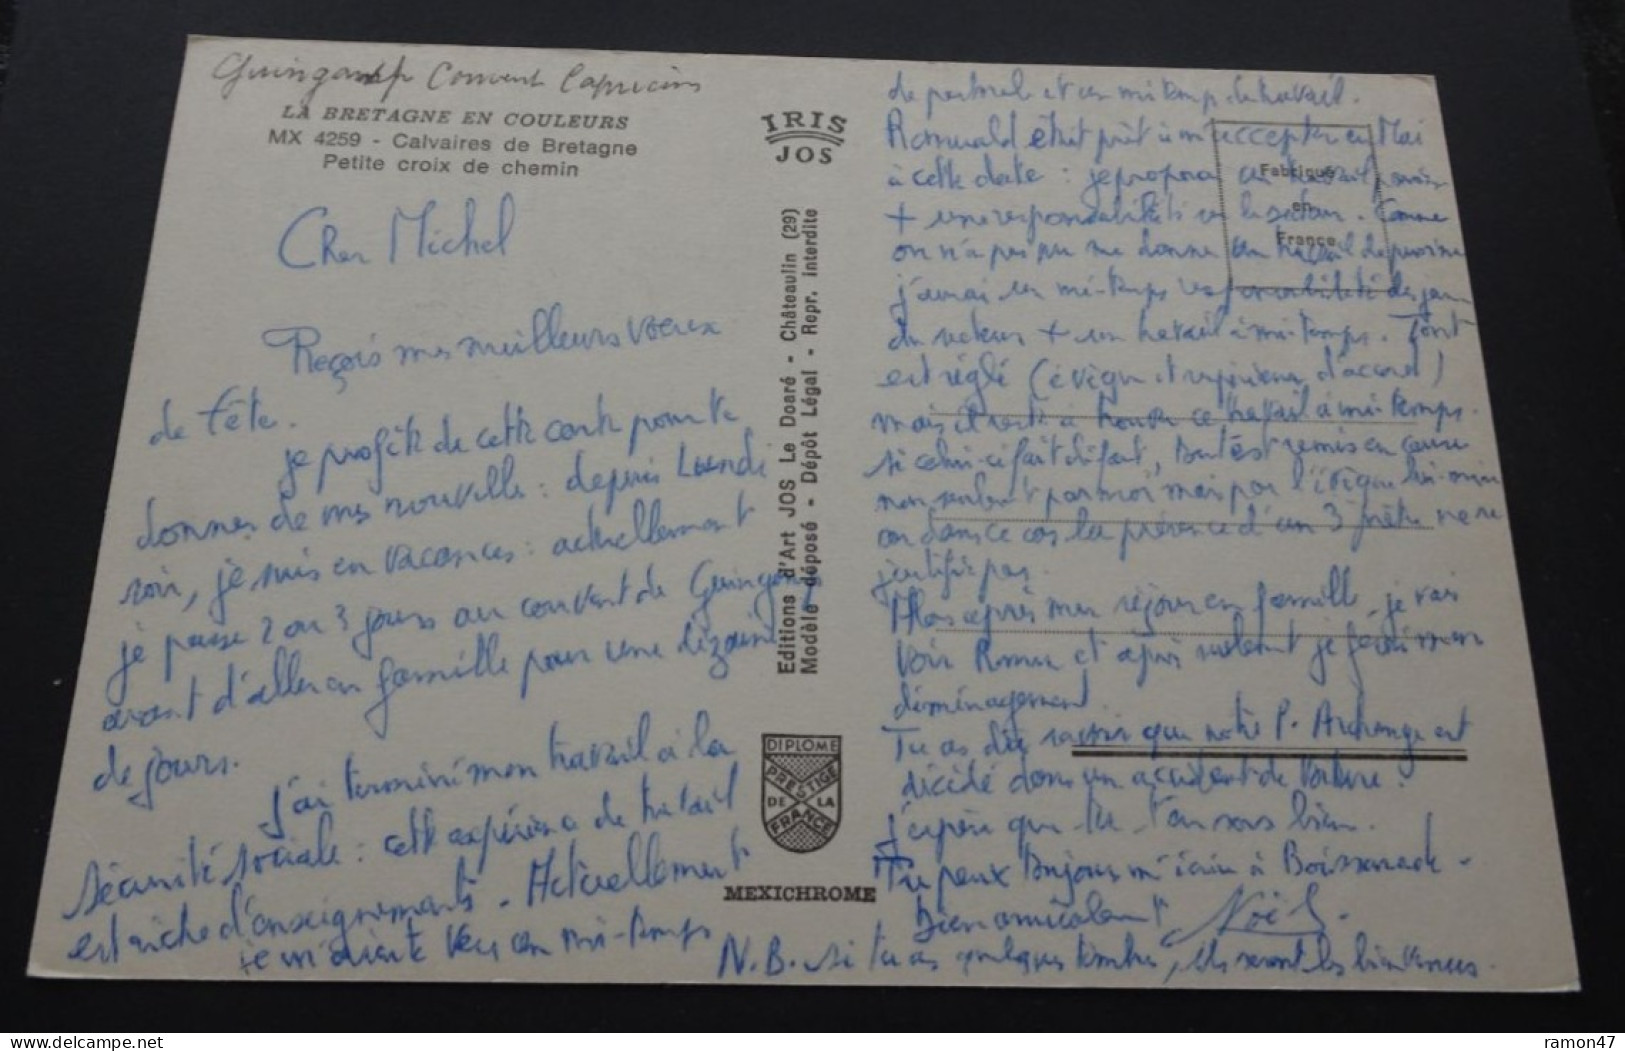 Guingamp Couvent Capucins
LA BRETAGNE EN COULEURS
MX 4259 - Calvaires de Bretagne
Petite croix de chemin
Cher Michel
Reçois mes meilleurs voeux
de fête.
je profite de cette carte pour te
donner de mes nouvelles : depuis Lundi
soir, je suis en vacances : actuellement
je passe 2 ou 3 jours au couvent de Guingamp
avant d'aller en famille pour une dizaine
de jours.
J'ai terminé mon travail à la
Sécurité sociale : cette expérience de travail
est riche d'enseignements. Actuellement
je m'oriente vers un mi-temps
IRIS
JOS
Editions d'Art JOS Le Doaré - Châteaulin (29)
Modèle déposé - Dépôt Légal - Repr. interdite
DIPLOME
PRESTIGE
DE LA
FRANCE
MEXICHROME
Fabriqué
en
France
de pastorale et un mi-temps de travail.
Romuald était prêt à m'accepter en Mai
à cette date : je propose un travail
+ une responsabilité sur le secteur. Comme
on n'a pas pu me donner un travail de
j'aurai un mi-temps responsabilité des
du secteur + un travail à mi-temps. Tout
est réglé (évêque et supérieurs d'accord)
mais il reste à trouver ce travail à mi-temps.
si celui-ci fait défaut, tout est remis en cause
non seulement par moi mais par l'évêque lui-même
car dans ce cas la présence d'un 3 prêtre ne se
justifie pas.
Alors après mon séjour en famille, je vais
voir Romu et après seulement je ferai mon
déménagement.
Tu as dû savoir que notre P. Archange est
décédé dans un accident de voiture.
J'espère que tu t'en sors bien.
Tu peux toujours m'écrire à
Bien amicalement Noël.
N.B. si tu as quelques timbres, ils seront les bienvenus.
ramon47